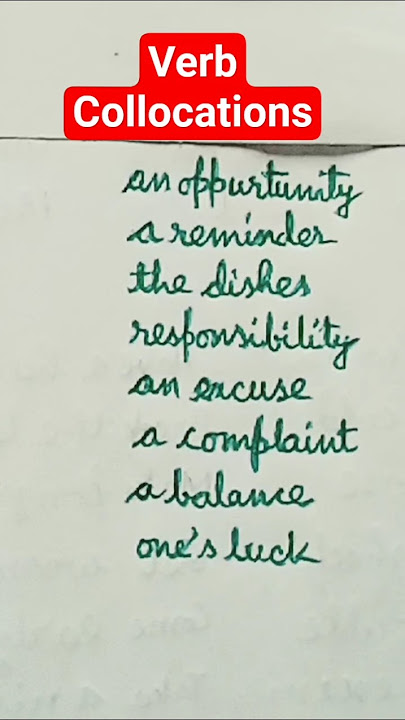 Verb
Collocations
an oppurtunity
a reminder
the dishes
responsibility
an excuse
a complaint
a balance
one's luck